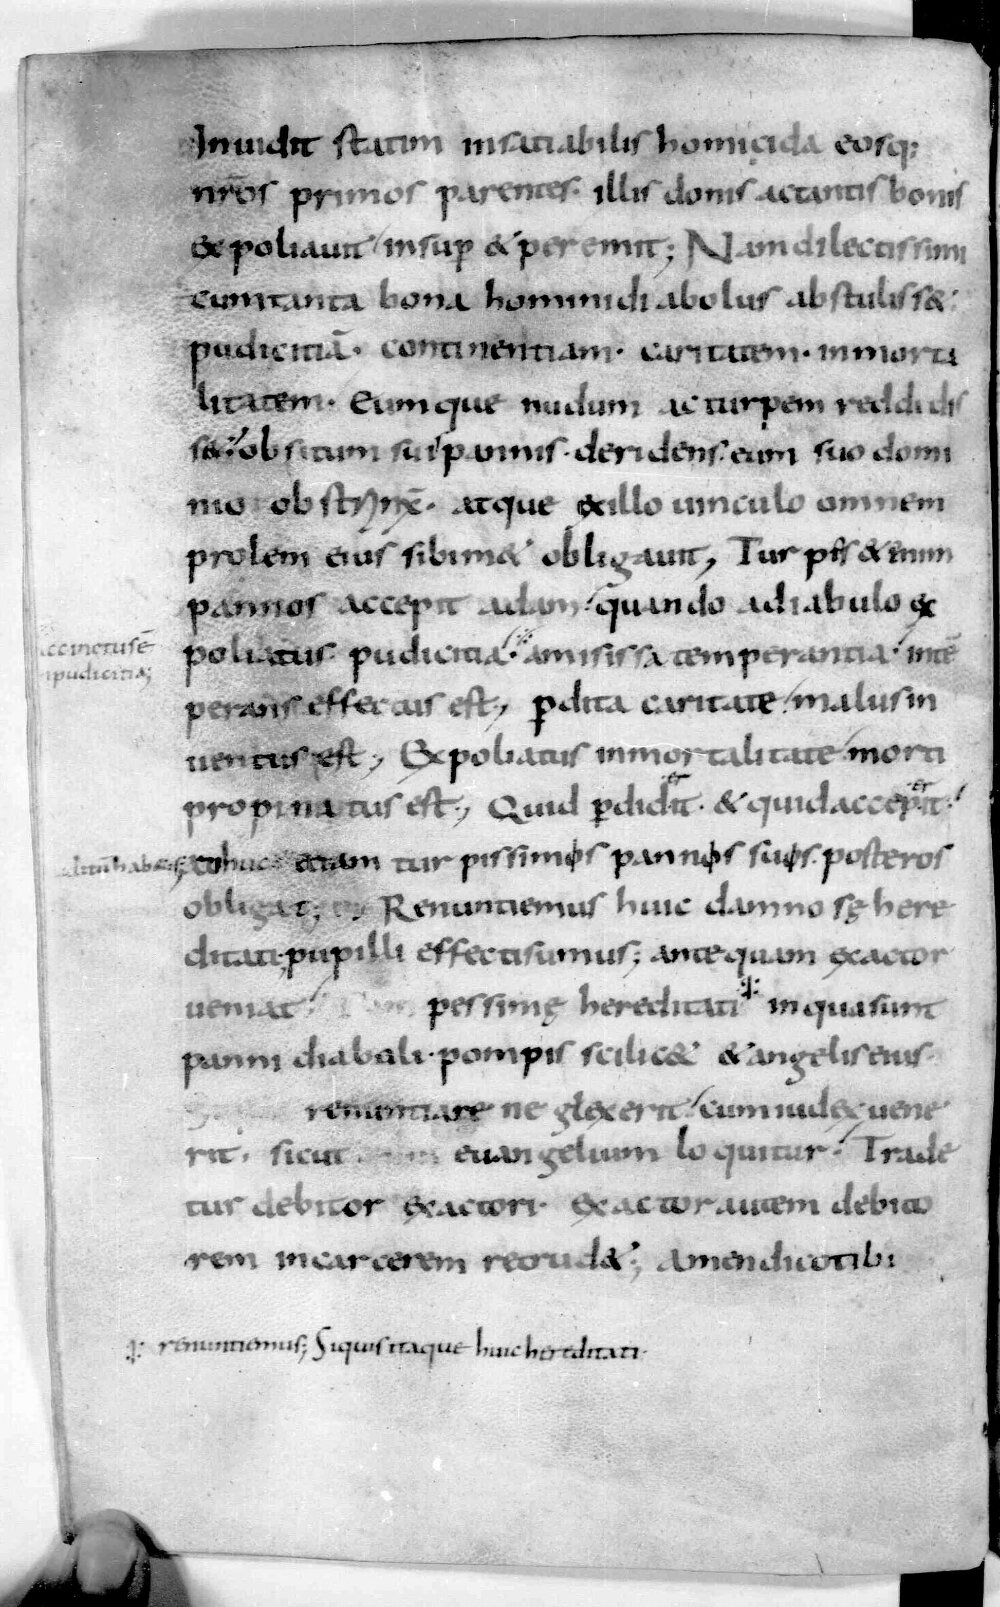 Inuidit statim insatiabilis homicida eosq;
nr̄os primos parentes· illis donis ac tantis bonis
expoliauit insup & peremit; Nam dilectissimi
cum tanta bona homini diabolus abstuliss&·
pudicitiā· continentiam· caritatem· inmorta
litatem· Eumque nudum ac turpem reddidis
s&· obsitum sui pannis· deridens· eum suo domi
nio obstrinx̄· atque exillo uinculo omnem
prolem eius sibim& obligauit, Turpis &enim
pannos accepit adam· quando a diabulo ex
poliatus pudicitia· amisissa temperantia· intē
accinctus ē
inpudicitia;
perans effectus est, perdita caritate· malus in
uentus est, Expoliatus inmortalitate morti
propinatus est, Quid perdiderit· & quid acceperit·
adhuc etiam turpissimos pannos suos posteros
obligat; Renuntiemus huic damnosę here
ditati, pupilli effecti sumus; ante quam exactor
ueniat· pessimę hereditati in qua sunt
panni diaboli· pompis scilic& & angelis eius·
renuntiare neglexerit· cum iudex uene
rit· sicut euangelium loquitur· Trade
tus debitor exactori· exactor autem debito
rem in carcerem retrud&; Amen dico tibi
renuntiemus; Siquis itaque huic hereditati·